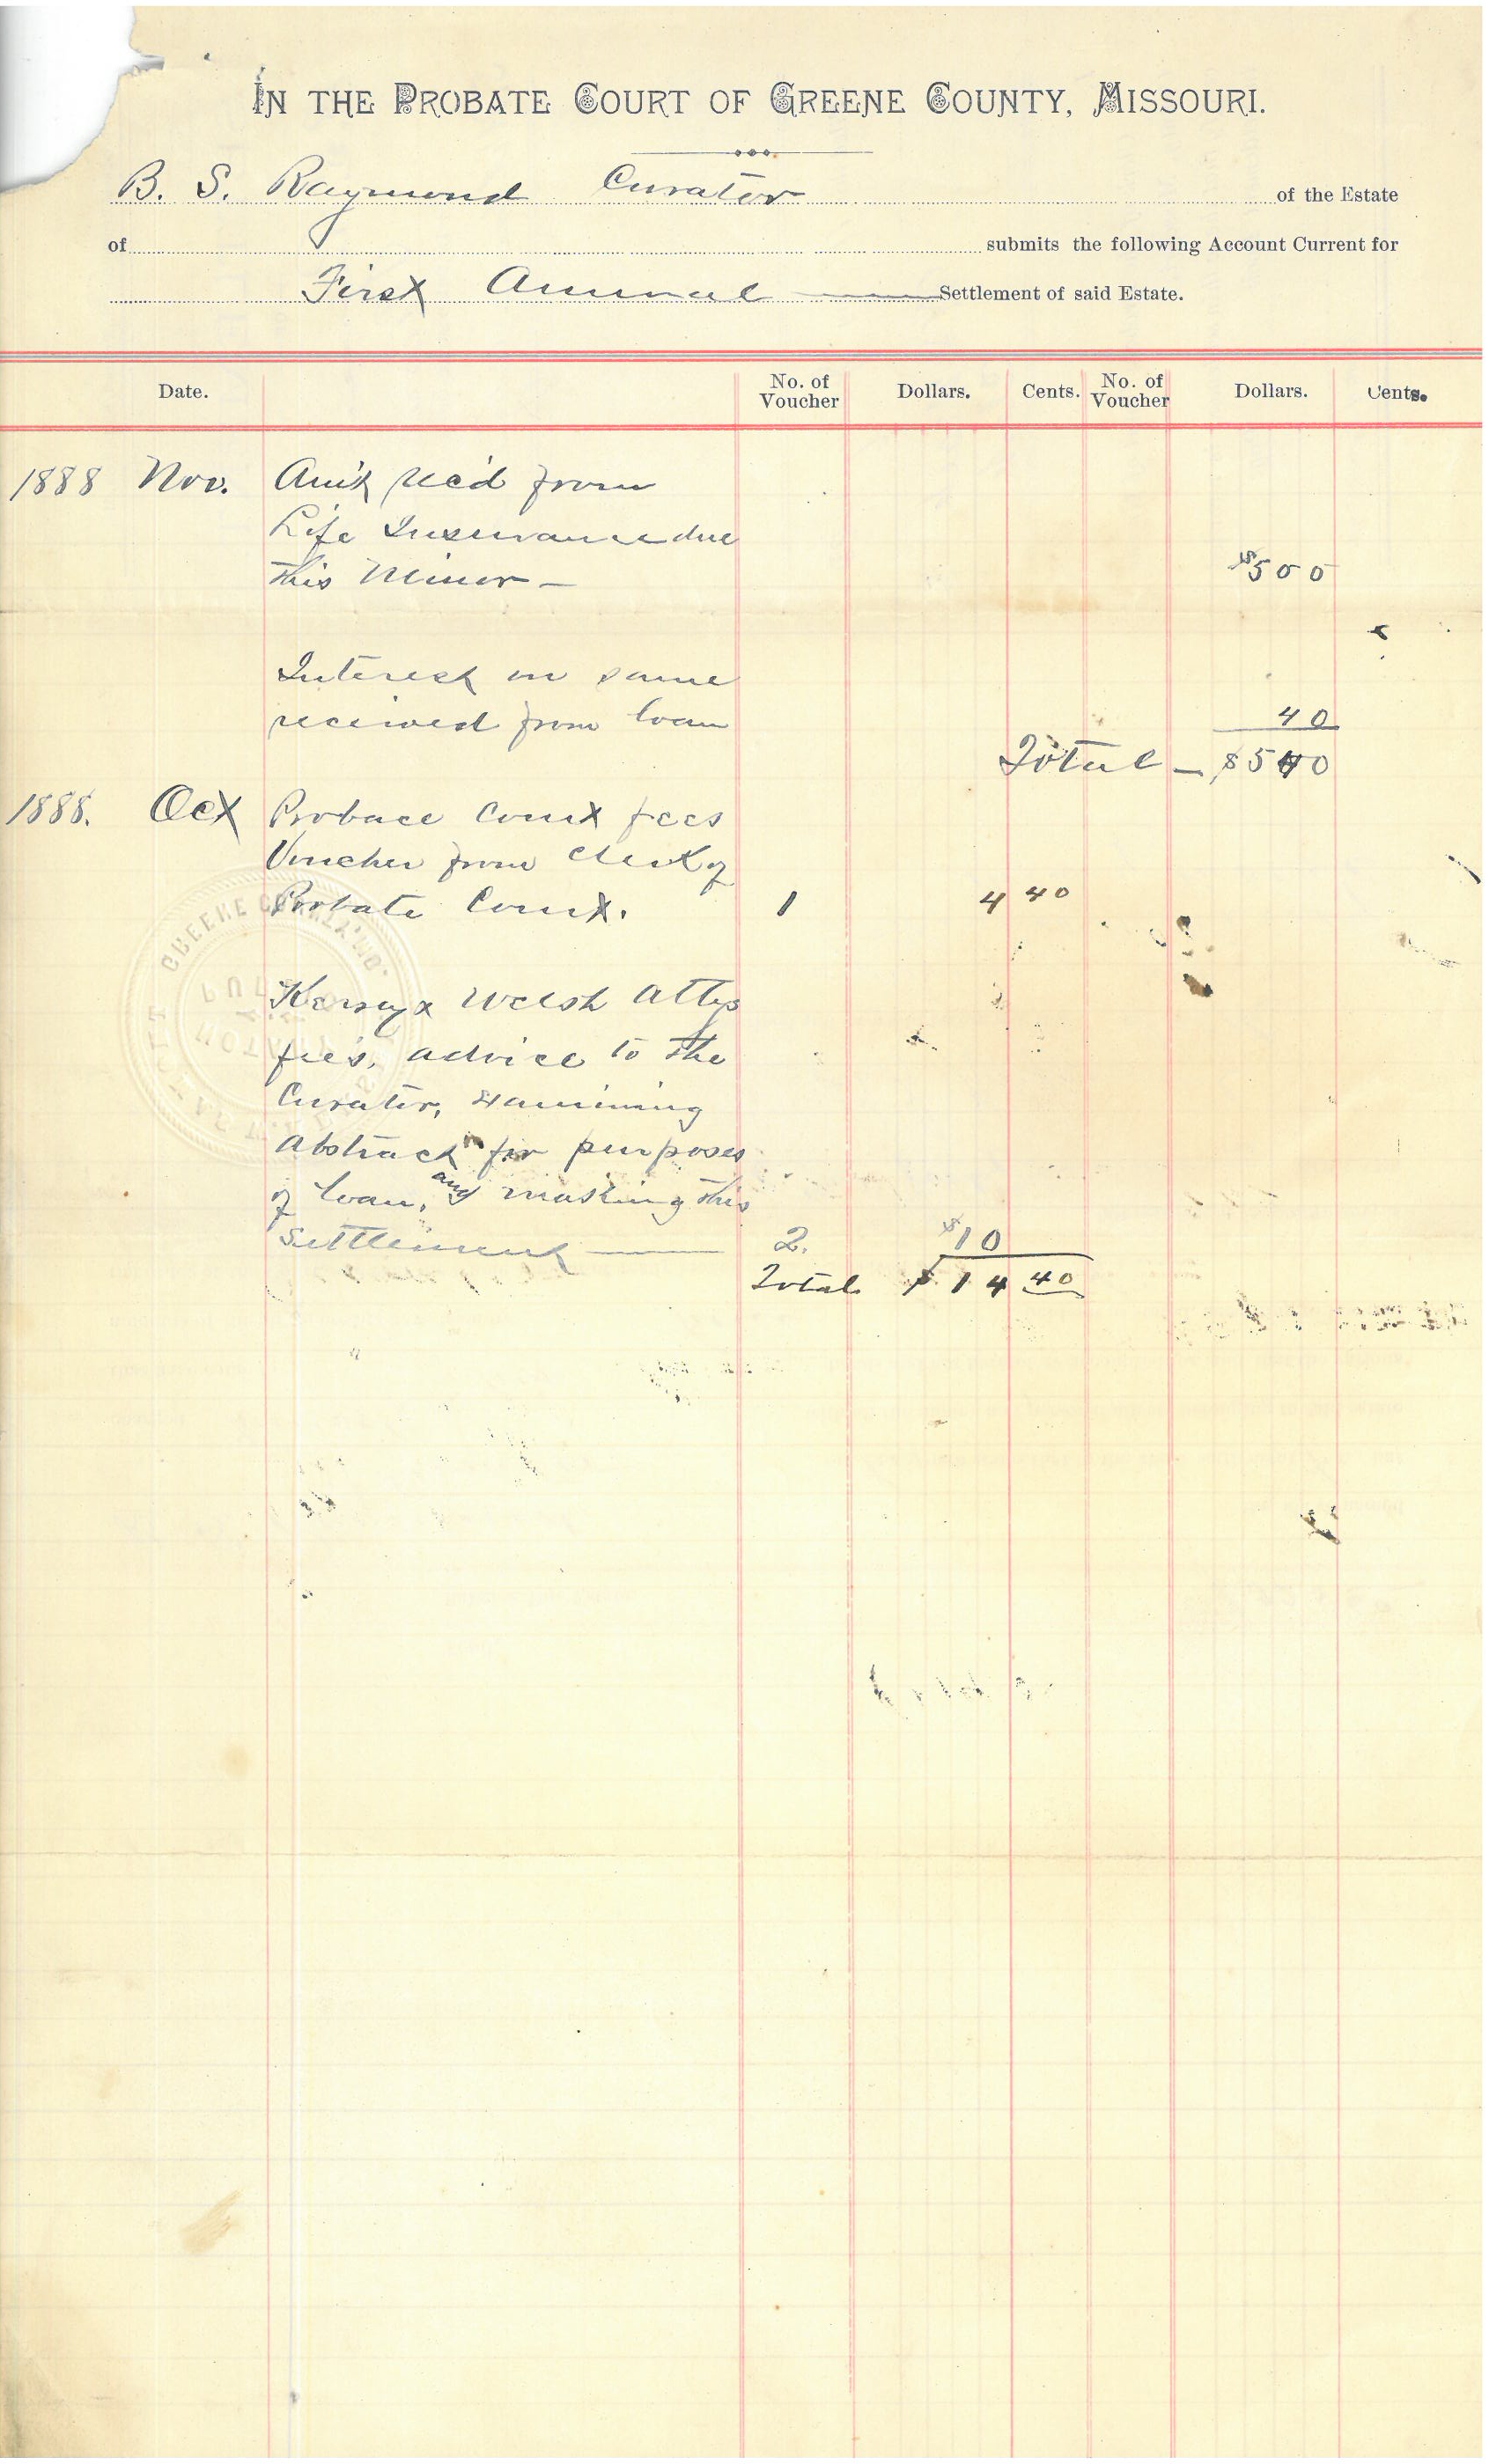 IN THE PROBATE COURT OF GREENE COUNTY, MISSOURI.
B. S. Raymond Curator of the Estate
of submits the following Account Current for
First Annual Settlement of said Estate.
Date. No. of Voucher Dollars. Cents. No. of Voucher Dollars. Cents.
1888 Nov. Am't Rec'd from
Life Insurance due
this Minor — $500
Interest on same
received from loan 40
Total — $540
1888. Oct Probate Court fees
Voucher from Clerk of
Probate Court. 1 4 40
& Welsh Attys
fees, advice to the
Curator, examining
Abstract for purposes
of loan, and making this
Settlement — 2. $10
Total $14 40